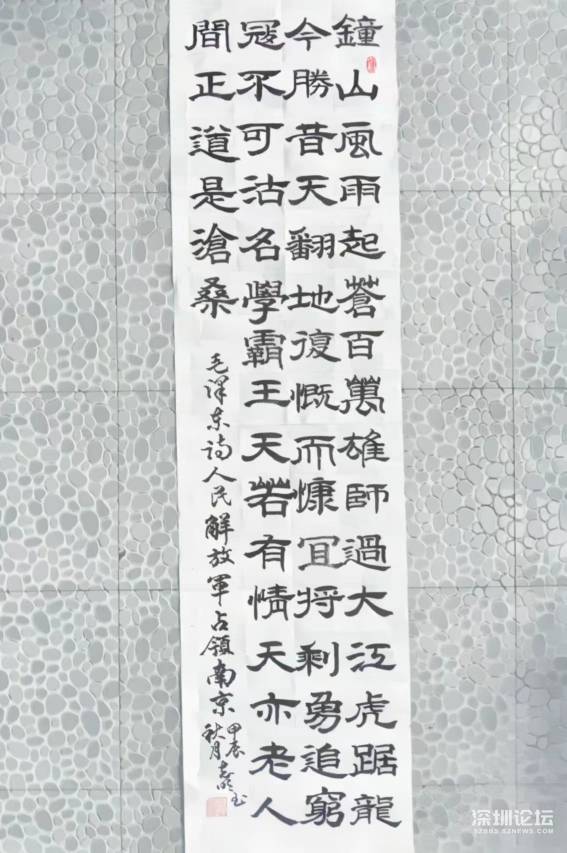 鐘山風雨起蒼百萬雄師過大江虎踞龍
今勝昔天翻地復慨而慷冝将剩勇追窮
冦不可沽名學霸王天若有情天亦老人
間正道是滄桑
毛澤东诗人民解放軍占領南京
甲辰
秋月
深圳论坛
SZBBS.SZNEWS.COM